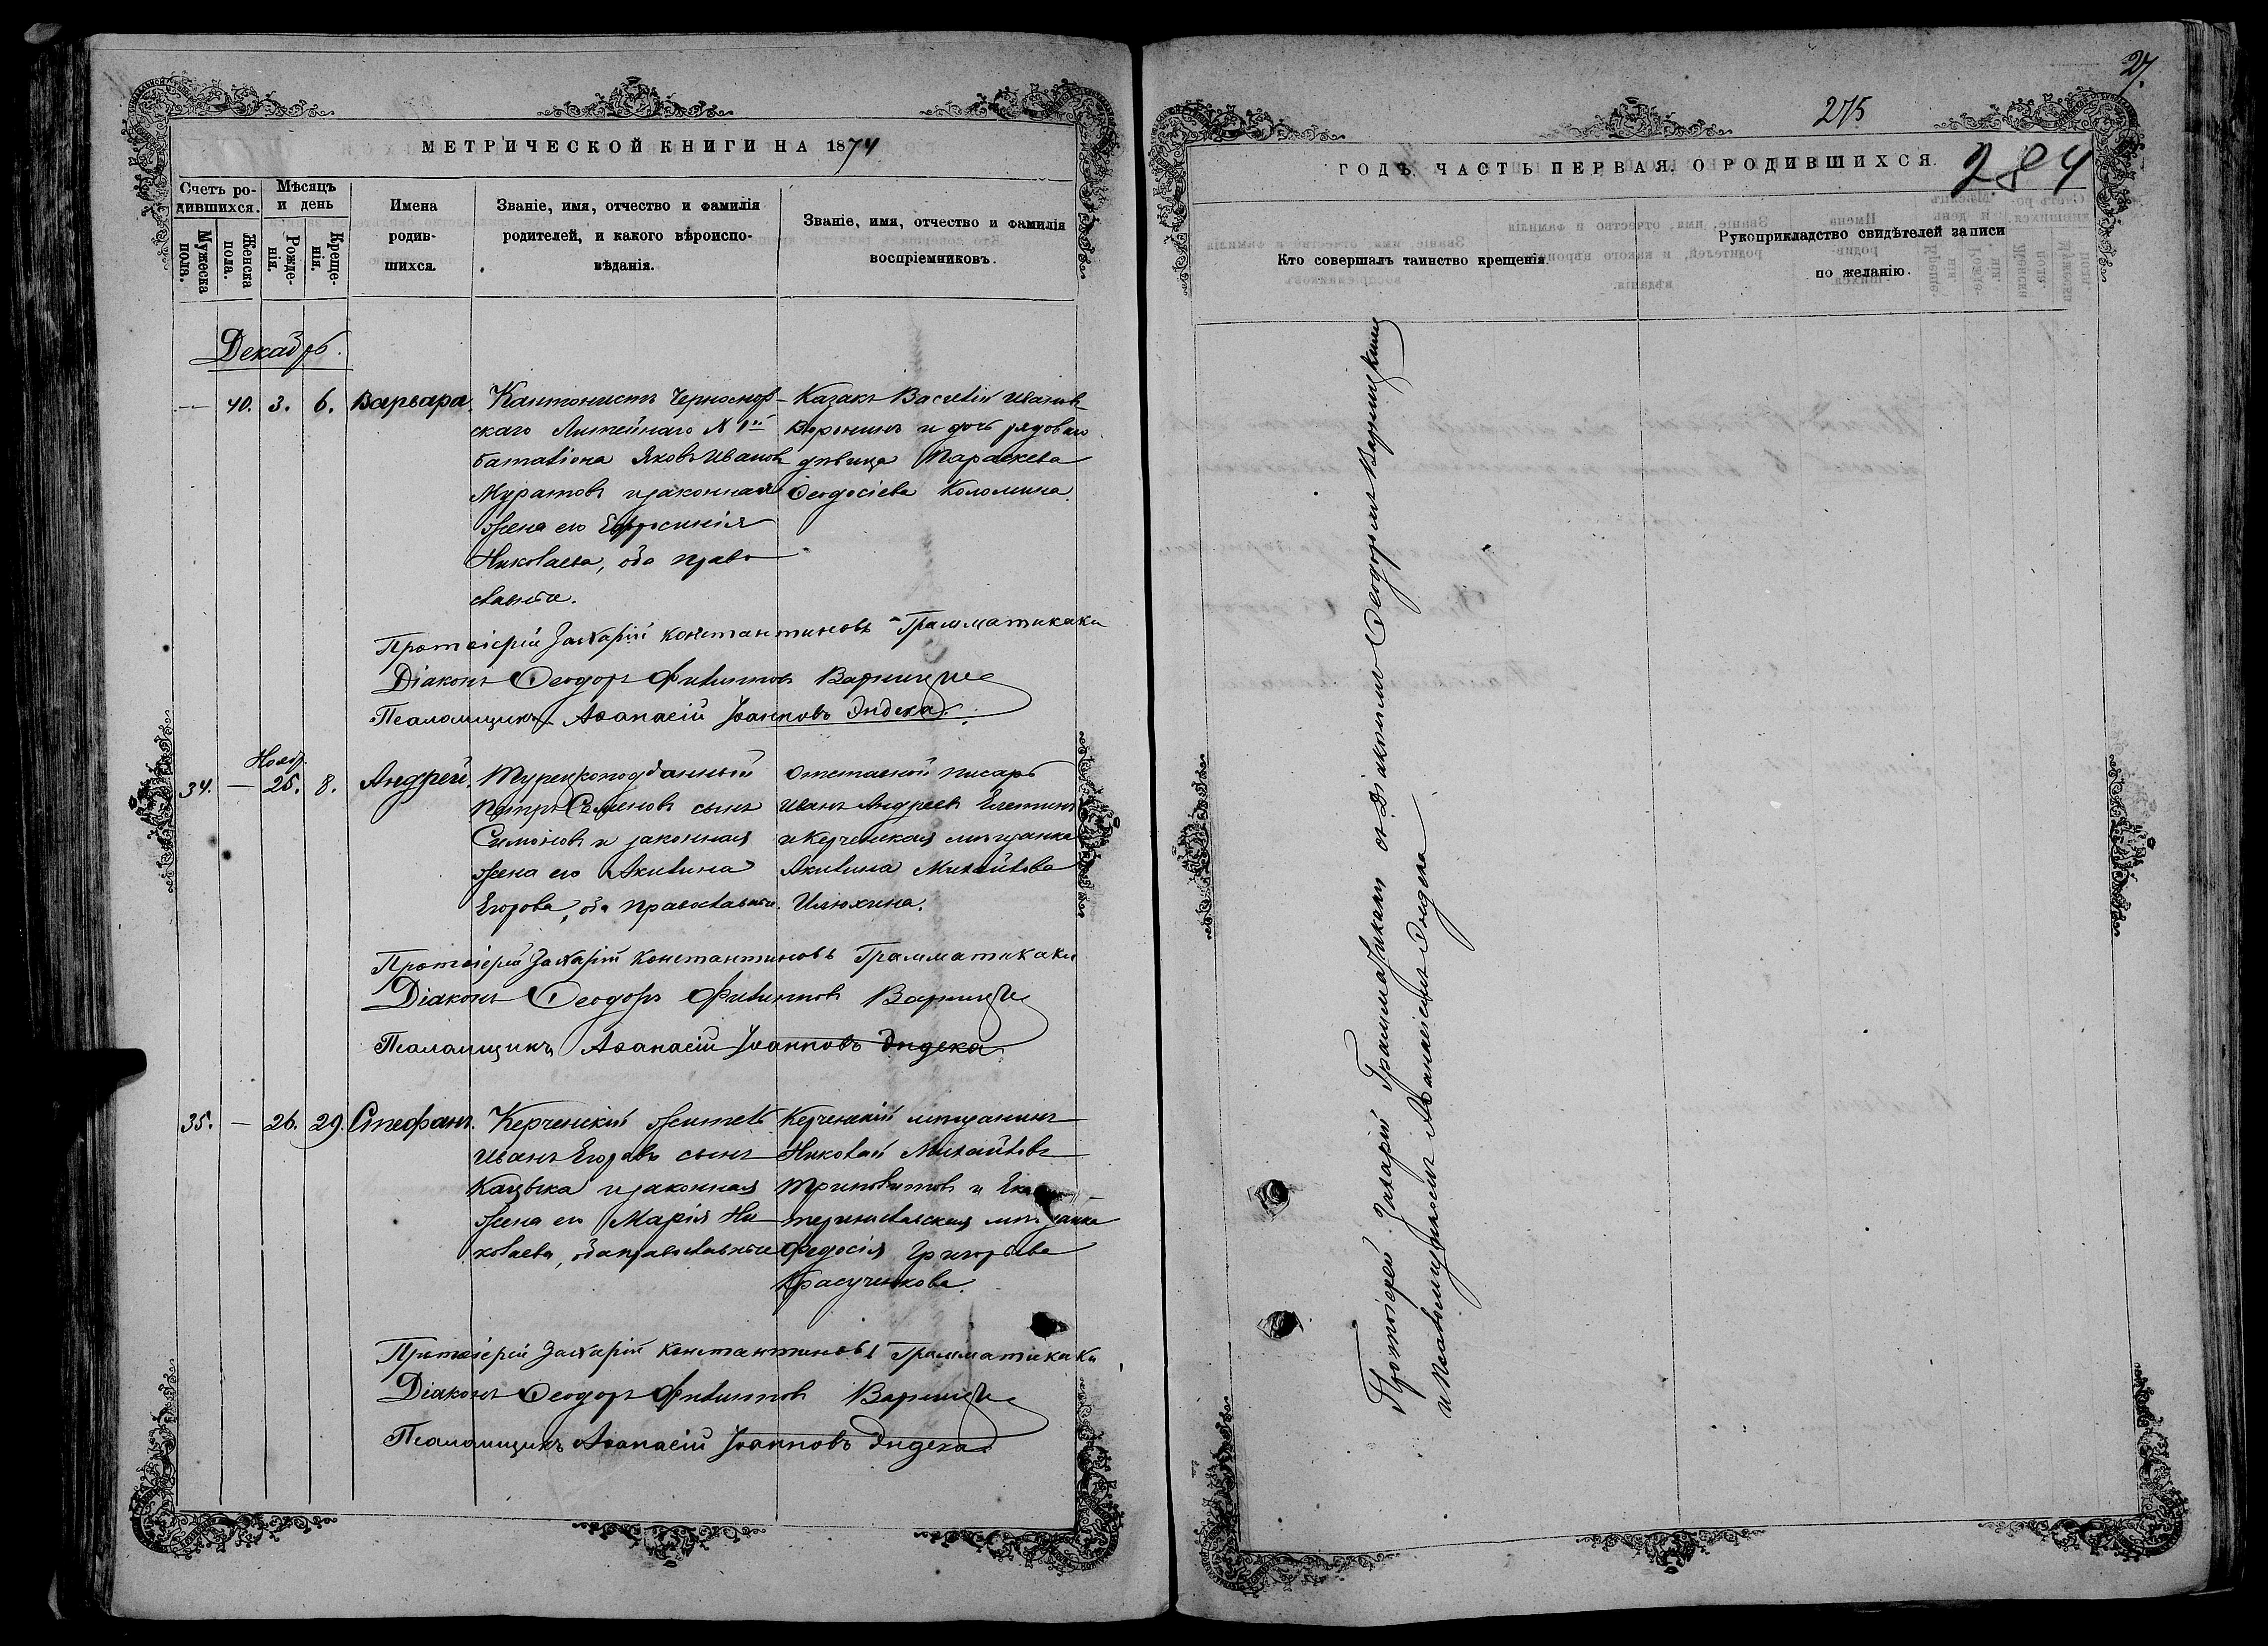 МЕТРИЧЕСКОЙ КНИГИ НА 1874
Счетъ ро-
дившихся.
Мужеска пола.
Женска пола.
Мѣсяцъ
и день
Рожде-
нія.
Креще-
нія.
Имена
родив-
шихся.
Званіе, имя, отчество и фамилія
родителей, и какого вѣроиспо-
вѣданія.
Званіе, имя, отчество и фамилія
воспріемниковъ.
Декабрь.
— 40. 3. 6. Варвара.
Кантонистъ Черномор-
скаго Линейнаго № 1й
баталіона Яковъ Ивановъ
Муратовъ и законная
жена его Евфросинія
Николаева, оба право
славные.
Казакъ Василій Ивановъ
Воронинъ и дочь рядоваго
дѣвица Параскева
Ѳеодосіева Коломина.
Протоіерей Захарій Константиновъ Грамматикаки
Діаконъ Ѳеодоръ Филипповъ Варницкіи
Псаломщикъ Аѳанасій Іоанновъ Эндека.
Нояб.
34. — 25. 8. Андрей.
Турецкоподданный
Петръ Семеновъ сынъ
Симоновъ и законная
жена его Акилина
Егорова, оба православные.
Отставной писарь
Иванъ Андреевъ
и Керченская мѣщанка
Акилина Михайлова
Илюхина.
Протоіерей Захарій Константиновъ Грамматикаки
Діаконъ Ѳеодоръ Филипповъ Варницкіи
Псаломщикъ Аѳанасій Іоанновъ Эндека
35. — 26. 29. Стефанъ.
Керченскій житель
Иванъ Егоровъ сынъ
и законная
жена его Марія Ни
колаева, оба православные
Керченскій мѣщанинъ
Николай Михайловъ
и Ека
теринославская мѣщанка
Федосія Григорьева
Протоіерей Захарій Константиновъ Грамматикаки
Діаконъ Ѳеодоръ Филипповъ Варницкіи
Псаломщикъ Аѳанасій Іоанновъ Эндека.
27.
275
284
ГОДЪ, ЧАСТЬ ПЕРВАЯ, О РОДИВШИХСЯ.
Кто совершалъ таинство крещенія.
Рукоприкладство свидѣтелей записи
по желанію.
Протоіерей Захарій Грамматикаки съ Діакономъ Ѳеодоромъ Варницкимъ
и Псаломщикомъ Аѳанасіемъ Эндека